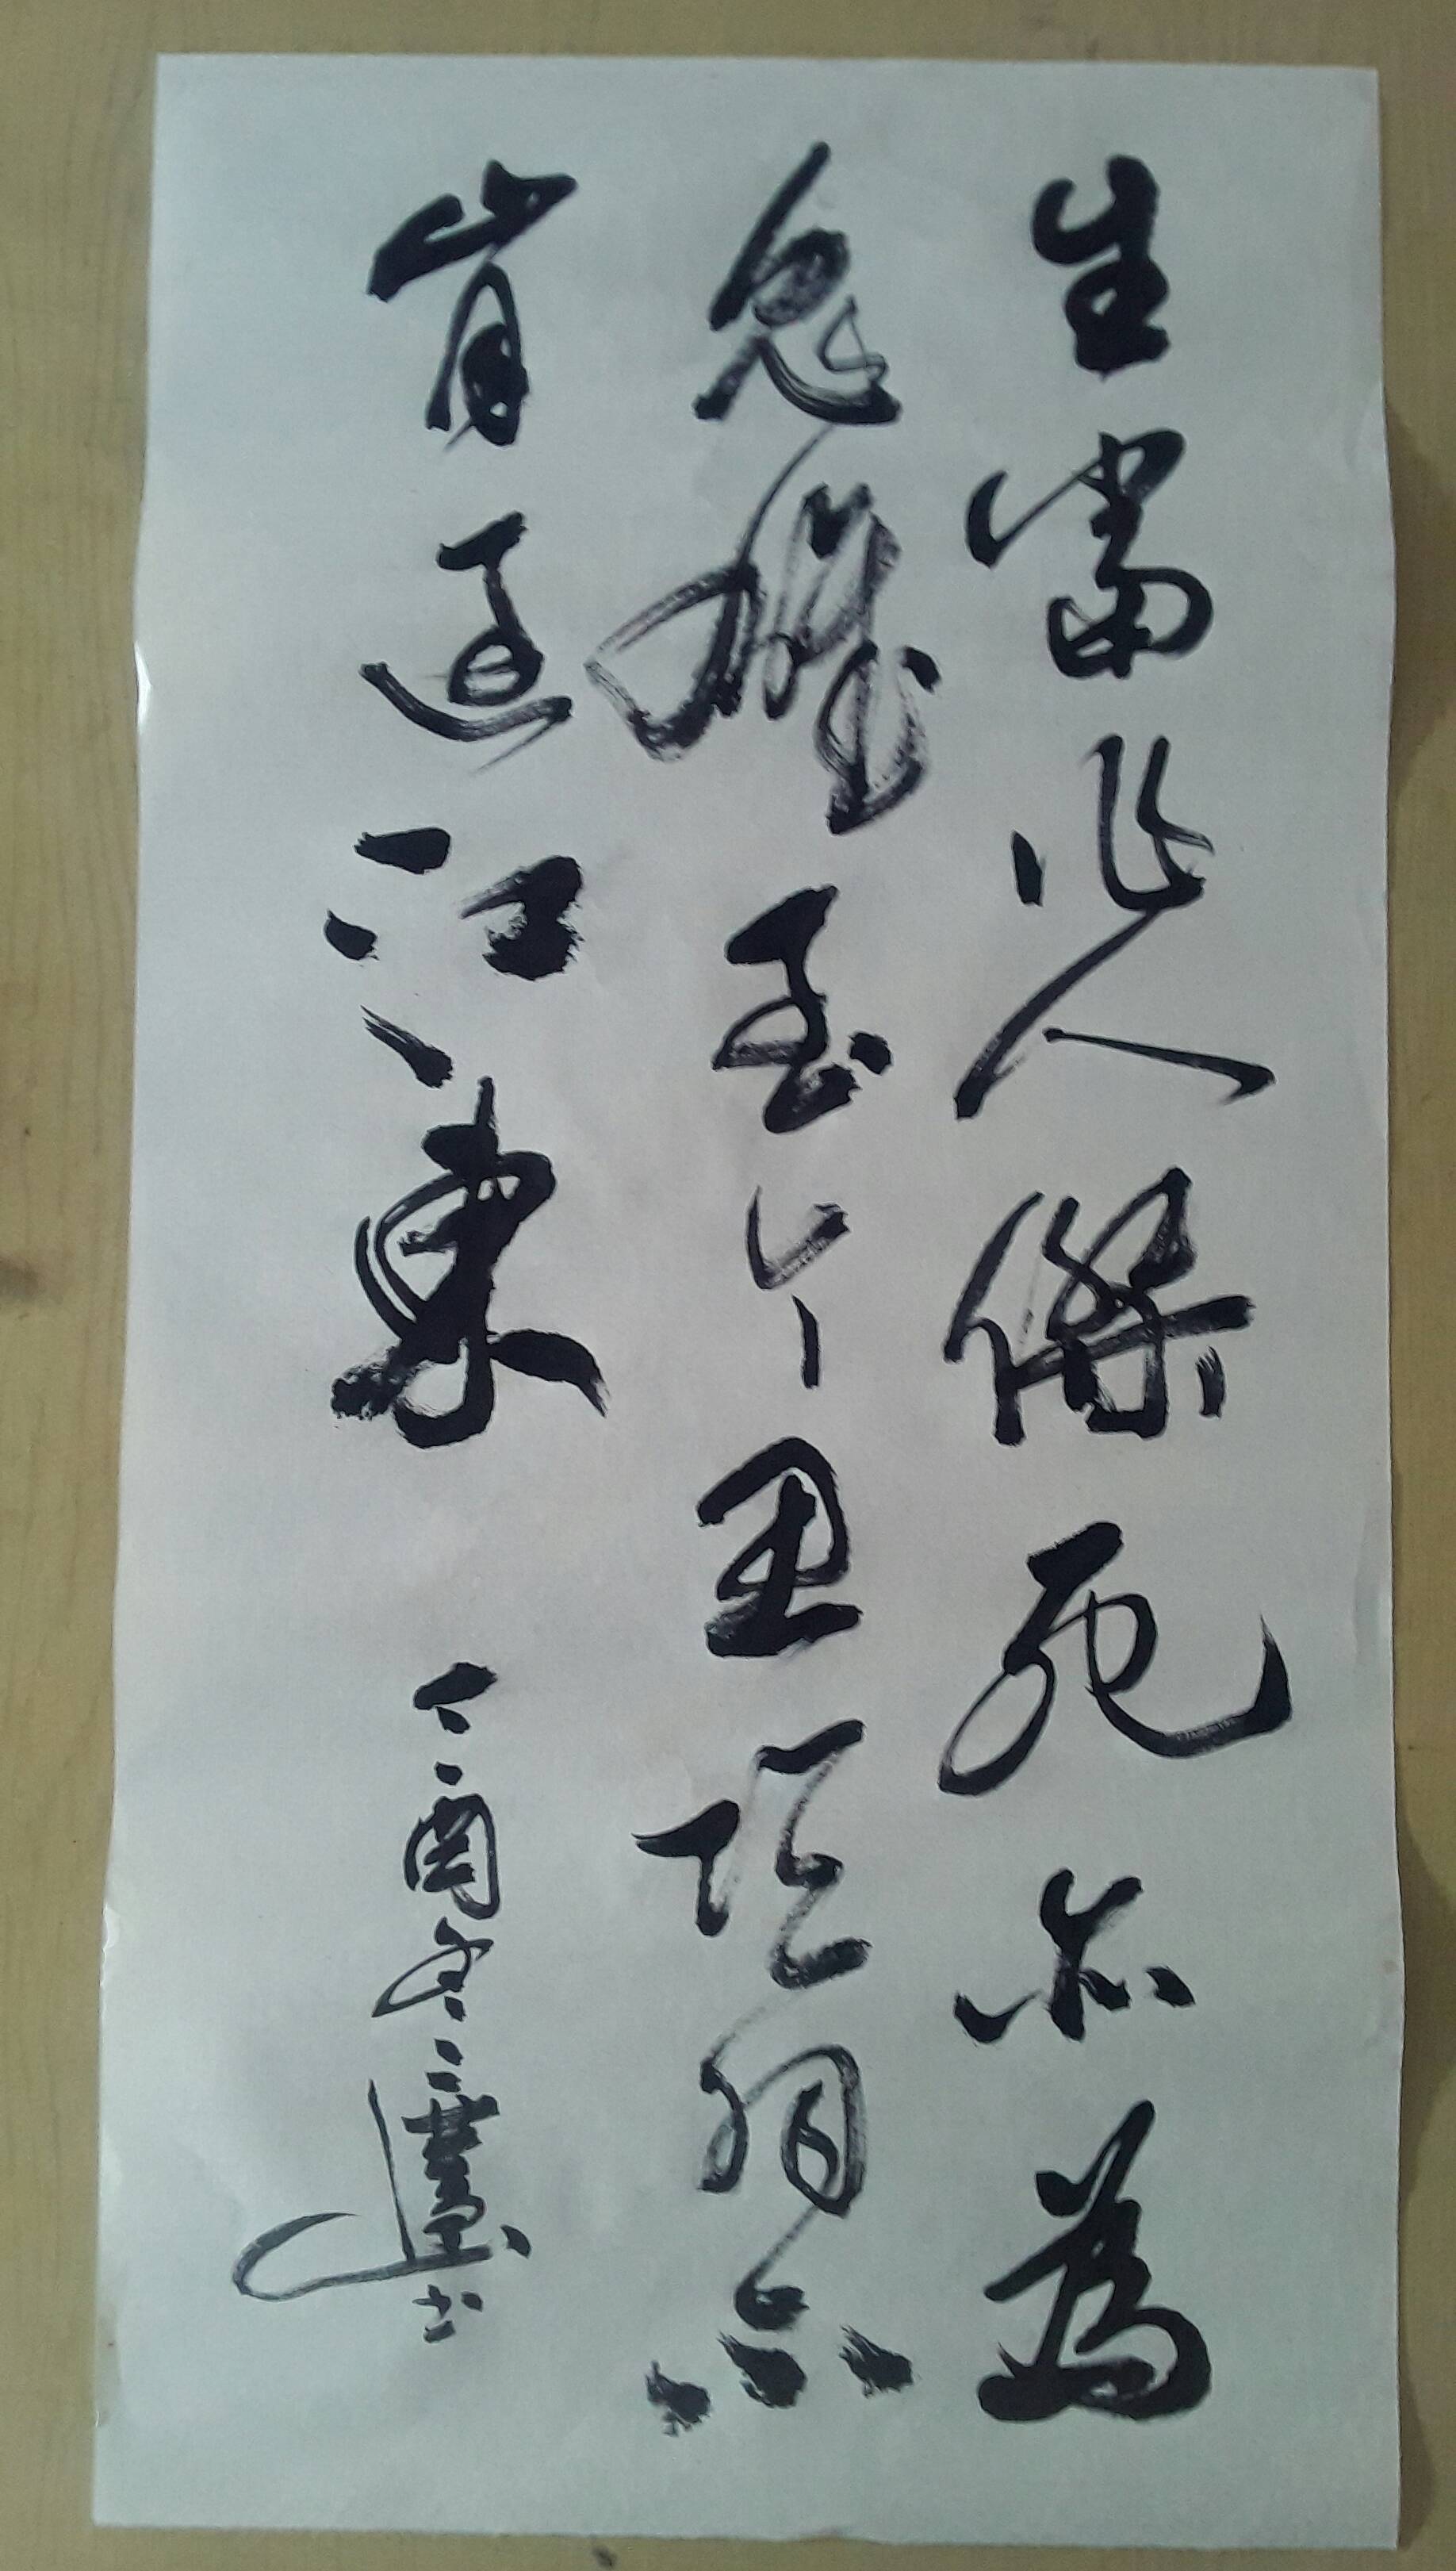 生當作人傑死亦為
鬼雄至今思項羽不
肯過江東 丁酉冬 書